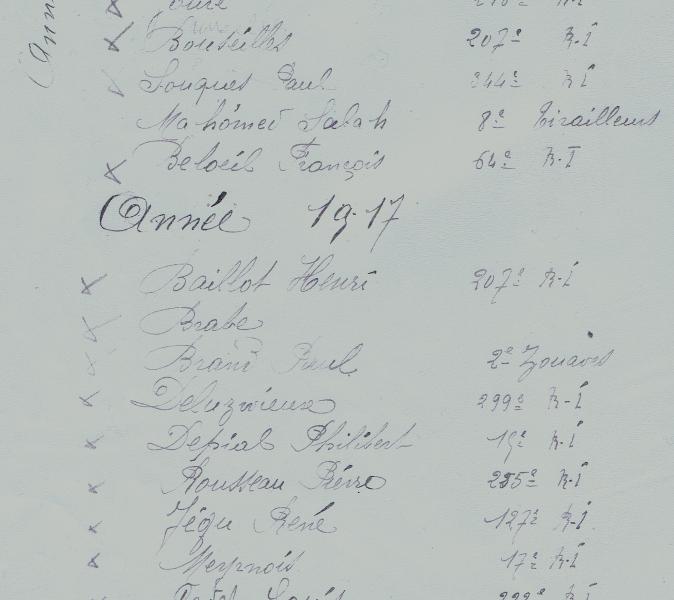 Bouseilles 207e R-I
Souques Paul 344e R-I
Mahomed Salah 8e Tirailleurs
Beloeil François 64e R-I
Année 1917
Baillot Henri 207e R-I
Brabe
Brand Paul 2e Zouaves
299e R-I
Depial Philibert R-I
Rousseau Pierre 255e R-I
Jégu René 127e R-I
Meyrnois 17e R-I